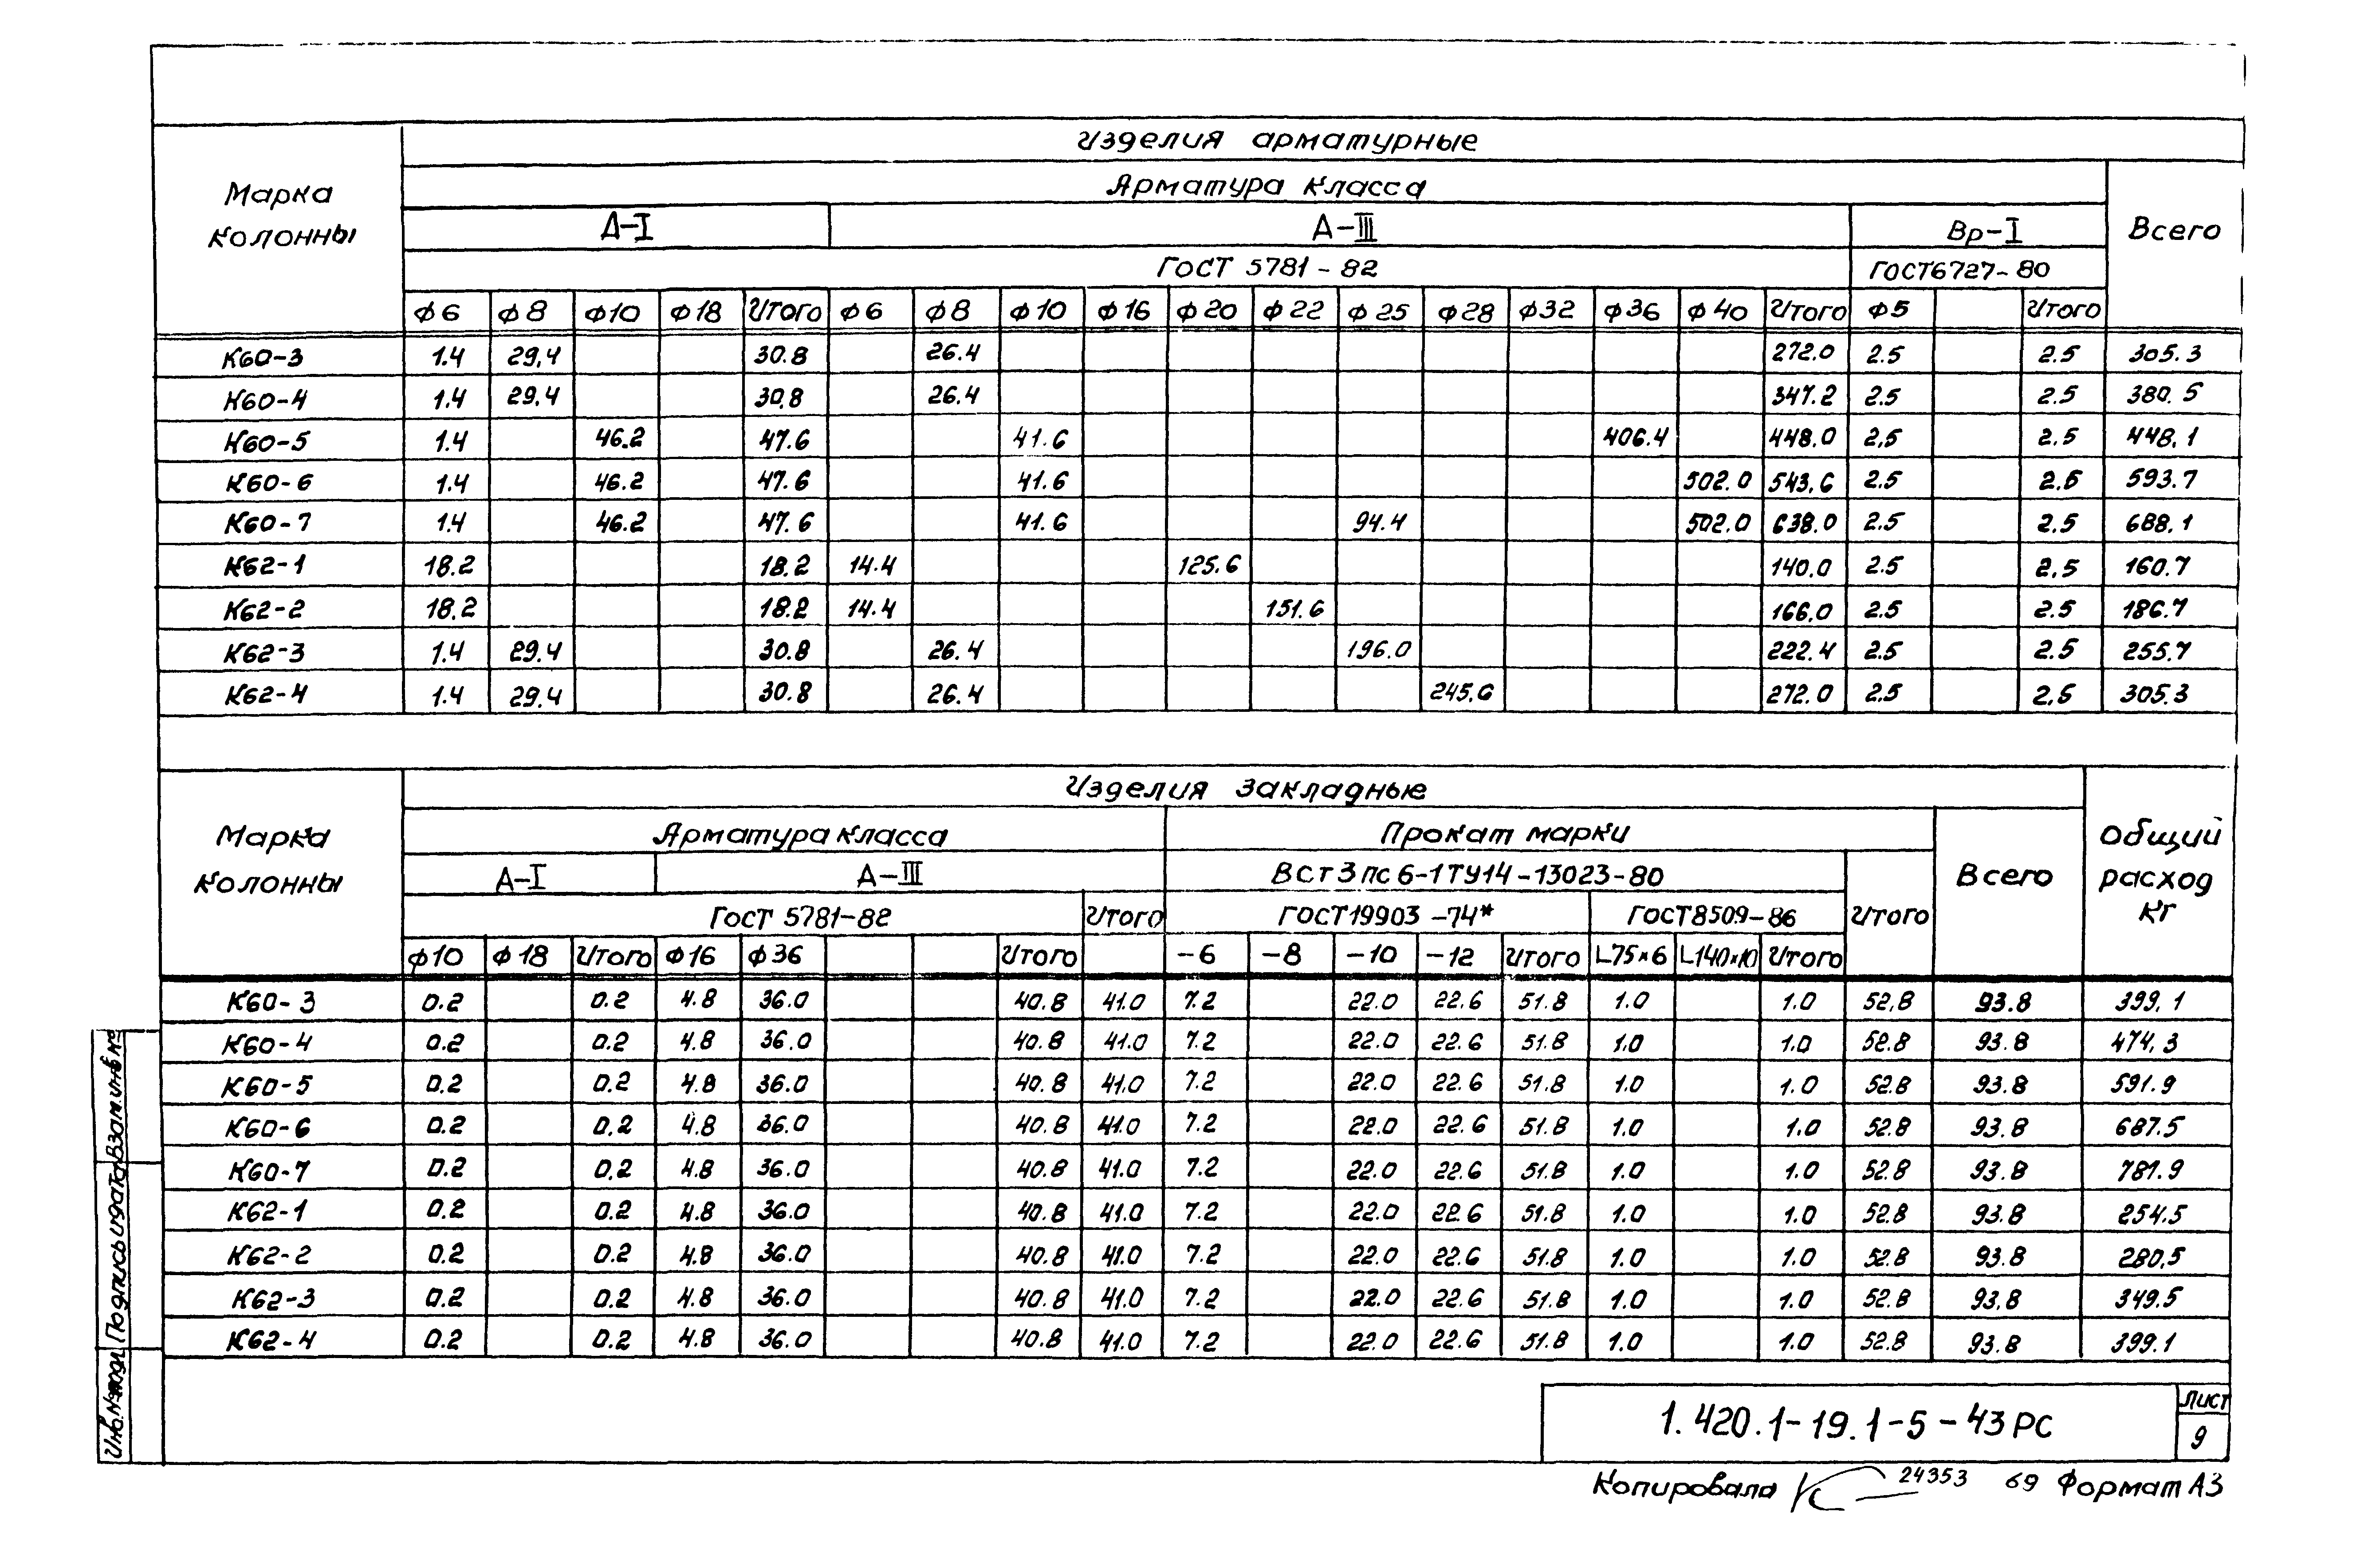 Изделия арматурные
Марка колонны
Арматура класса
Всего
А-I А-III Вр-I
ГОСТ 5781-82 ГОСТ6727-80
ф6 ф8 ф10 ф18 Итого ф6 ф8 ф10 ф16 ф20 ф22 ф25 ф28 ф32 ф36 ф40 Итого ф5 Итого
К60-3 1.4 29,4 30.8 26.4 272.0 2.5 2.5 305.3
К60-4 1.4 29,4 30,8 26.4 347.2 2.5 2.5 380.5
К60-5 1.4 46.2 47.6 41.6 406.4 448.0 2,5 2.5 448.1
К60-6 1.4 46.2 47.6 41.6 502.0 543,6 2.5 2.5 593.7
К60-7 1.4 46.2 47.6 41.6 94.4 502.0 638.0 2.5 2.5 688.1
К62-1 18.2 18.2 14.4 125.6 140.0 2.5 2.5 160.7
К62-2 18.2 18.2 14.4 151.6 166.0 2.5 2.5 186.7
К62-3 1.4 29.4 30.8 26.4 196.0 222.4 2.5 2.5 255.7
К62-4 1.4 29.4 30.8 26.4 245,6 272.0 2.5 2.5 305.3
Изделия закладные
Марка колонны
Арматура класса Прокат марки
Всего
Общий расход кг
А-I А-III ВСт3пс6-1ТУ14-13023-80
ГОСТ 5781-82 Итого ГОСТ19903-74* ГОСТ8509-86 Итого
ф10 ф18 Итого ф16 ф36 Итого -6 -8 -10 -12 Итого L75×6 L140×10 Итого
К60-3 0.2 0.2 4.8 36.0 40.8 41.0 7.2 22.0 22.6 51.8 1.0 1.0 52,8 93.8 399,1
К60-4 0.2 0.2 4.8 36.0 40.8 41.0 7.2 22.0 22.6 51.8 1.0 1.0 52.8 93.8 474,3
К60-5 0.2 0.2 4.8 36.0 40.8 41.0 7.2 22.0 22.6 51.8 1.0 1.0 52.8 93.8 591.9
К60-6 0.2 0.2 4.8 36.0 40.8 41.0 7.2 22.0 22.6 51.8 1.0 1.0 52.8 93.8 687.5
К60-7 0.2 0.2 4.8 36.0 40.8 41.0 7.2 22.0 22.6 51.8 1.0 1.0 52.8 93.8 781.9
К62-1 0.2 0.2 4.8 36.0 40.8 41.0 7.2 22.0 22.6 51.8 1.0 1.0 52.8 93.8 254.5
К62-2 0.2 0.2 4.8 36.0 40.8 41.0 7.2 22.0 22.6 51.8 1.0 1.0 52.8 93.8 280,5
К62-3 0.2 0.2 4.8 36.0 40.8 41.0 7.2 22.0 22.6 51.8 1.0 1.0 52.8 93,8 349.5
К62-4 0.2 0.2 4.8 36.0 40.8 41.0 7.2 22.0 22.6 51.8 1.0 1.0 52.8 93.8 399.1
Инв.№подл. Подпись и дата Взам.инв №
1.420.1-19.1-5-43РС
Лист
9
Копировала 24353 69 Формат А3